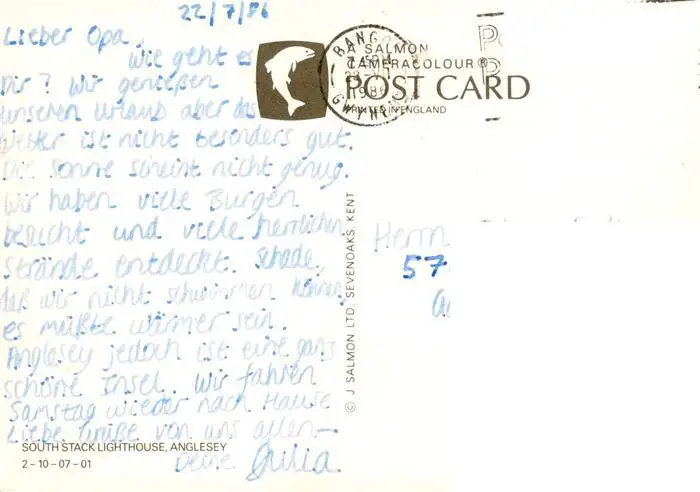 22/7/86
Lieber Opa,
Wie geht es
Dir? Wir genießen
unseren Urlaub aber das
Wetter ist nicht besonders gut.
Die Sonne scheint nicht genug.
Wir haben viele Burgen
besucht und viele herrlichen
Strände entdeckt. Schade,
daß wir nicht schwimmen können
es müßte wärmer sein.
Anglesey jedoch ist eine ganz
schöne Insel. Wir fahren
Samstag wieder nach Hause
Liebe Grüße von uns allen—
Deine Julia.
SOUTH STACK LIGHTHOUSE, ANGLESEY
2-10-07-01
© J SALMON LTD, SEVENOAKS, KENT
A SALMON
CAMERACOLOUR®
POST CARD
PRINTED IN ENGLAND
BANGOR
1986
GWYNEDD
Herrn
57